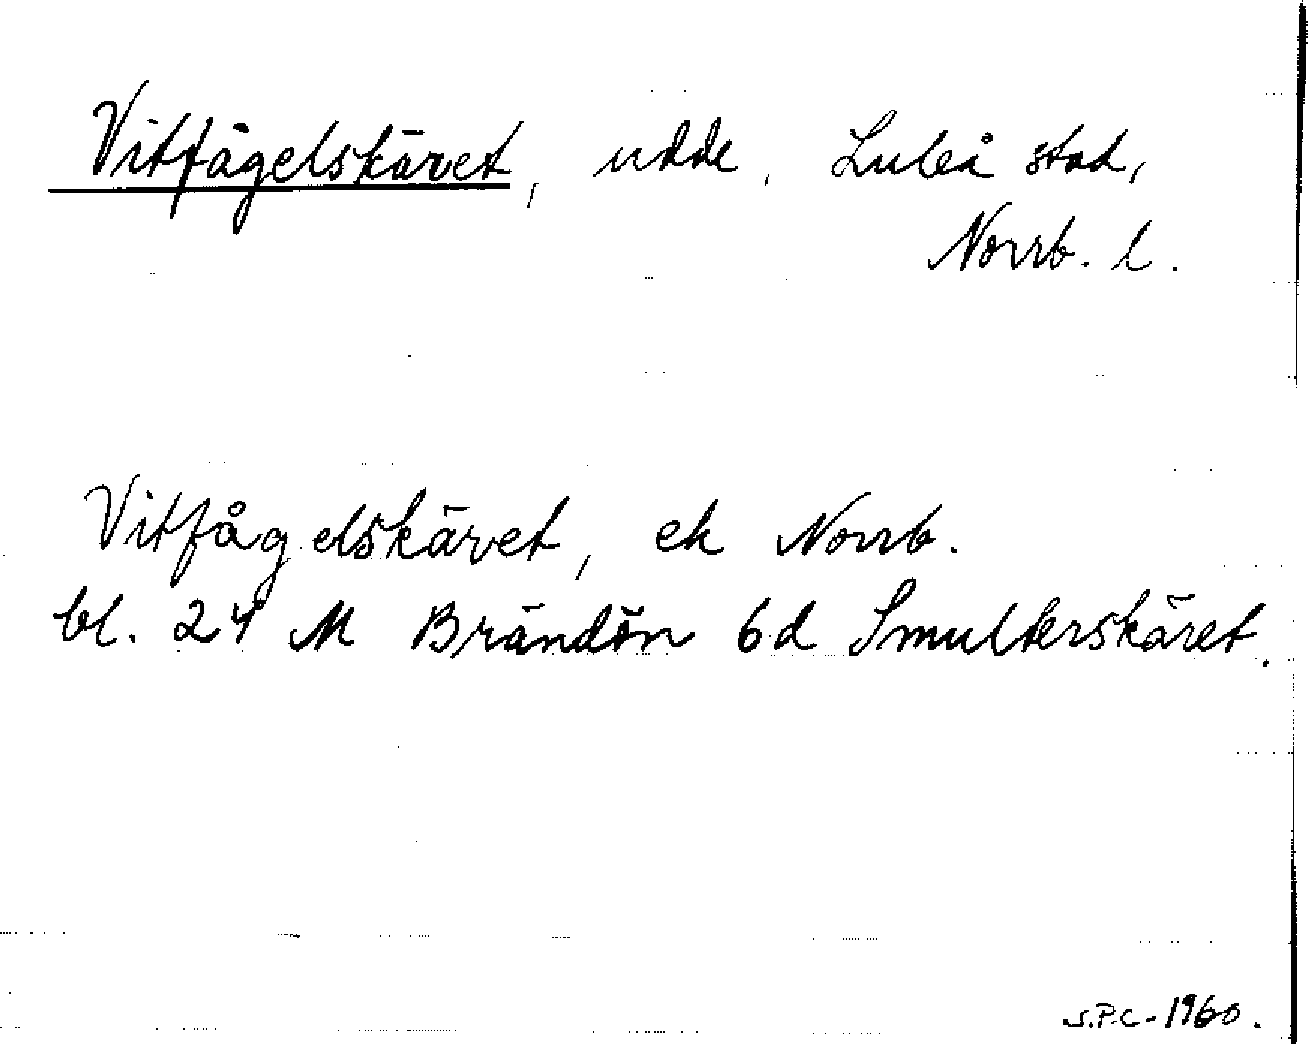 Vitfågelskäret, udde, Luleå stad,
Norrb. l.
Vitfågelskäret, ek Norrb.
bl. 24 M Brändön 6d Smulterskäret.
S.P.C. - 1960.